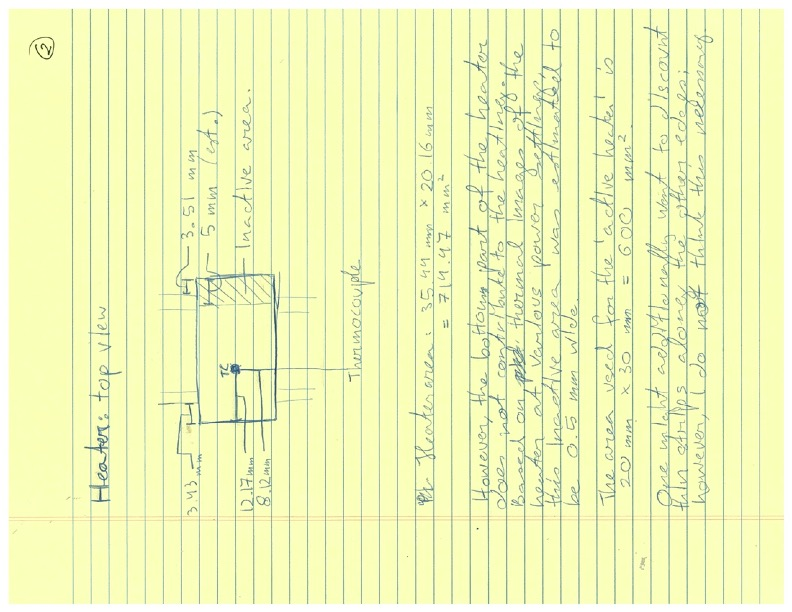 ②
Heater: top view
3.51 mm
5 mm (est.)
Inactive area.
TC
3.43 mm
12.17 mm
8.12 mm
Thermocouple
Heater area: 35.44 mm × 20.16 mm
= 714.47 mm²
However, the bottom part of the heater
does not contribute to the heating.
Based on thermal images of the
heater at various power settings
this inactive area was estimated to
be 0.5 mm wide.
The area used for the 'active heater' is
20 mm × 30 mm = 600 mm².
One might additionally want to discount
thin strips along the other edges;
however, I do not think this necessary